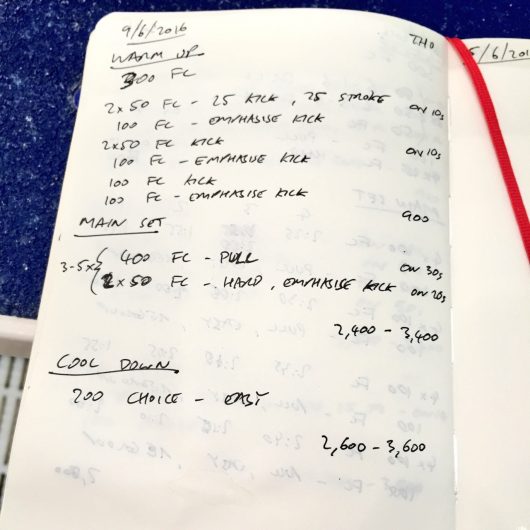 9/6/2016
THU
WARM UP
300 FC
2x50 FC - 25 KICK, 25 STROKE ON 10s
100 FC - EMPHASISE KICK
2x50 FC KICK ON 10s
100 FC - EMPHASISE KICK
100 FC KICK
100 FC - EMPHASISE KICK
900
MAIN SET
3-5x{ 400 FC - PULL ON 30s
2x50 FC - HARD, EMPHASISE KICK ON 20s
2,400 - 3,400
COOL DOWN
200 CHOICE - EASY
2,600 - 3,600
5/6/2016